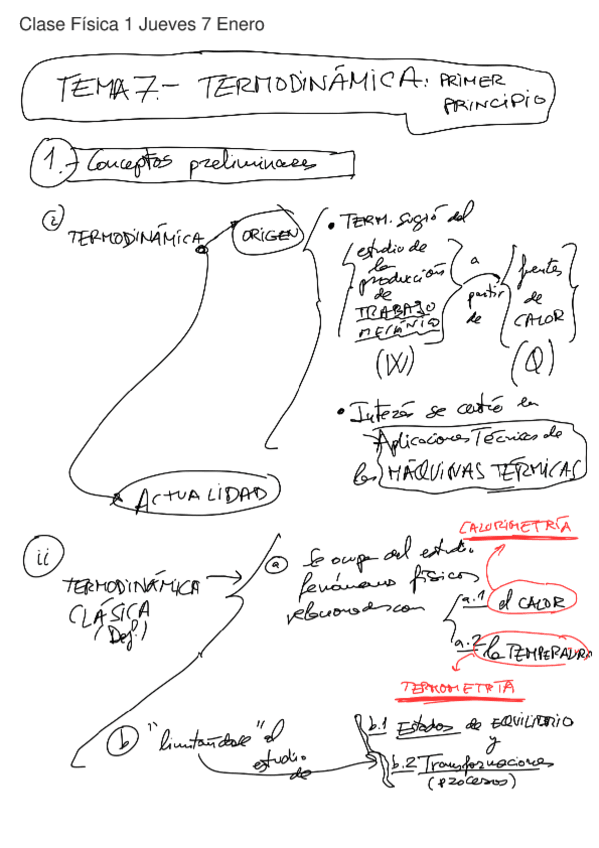 Clase Física 1 Jueves 7 Enero
TEMA 7.- TERMODINÁMICA: PRIMER
PRINCIPIO
1.- Conceptos preliminares
i
TERMODINÁMICA
ORIGEN
• TERM. surgió del
estudio de
la
producción
de
TRABAJO
MECÁNICO
(W)
a
partir
de
fuentes
de
CALOR
(Q)
• Interés se centró en
Aplicaciones Técnicas de
las MÁQUINAS TÉRMICAS
ACTUALIDAD
ii
TERMODINÁMICA
CLÁSICA
(Def.)
a
Se ocupa del estudio
fenómenos físicos
relacionados con
CALORIMETRÍA
a.1 el CALOR
a.2 la TEMPERATURA
TERMOMETRÍA
b "limitándose" al
estudio
de
b.1 Estados de EQUILIBRIO
y
b.2 Transformaciones
(procesos)